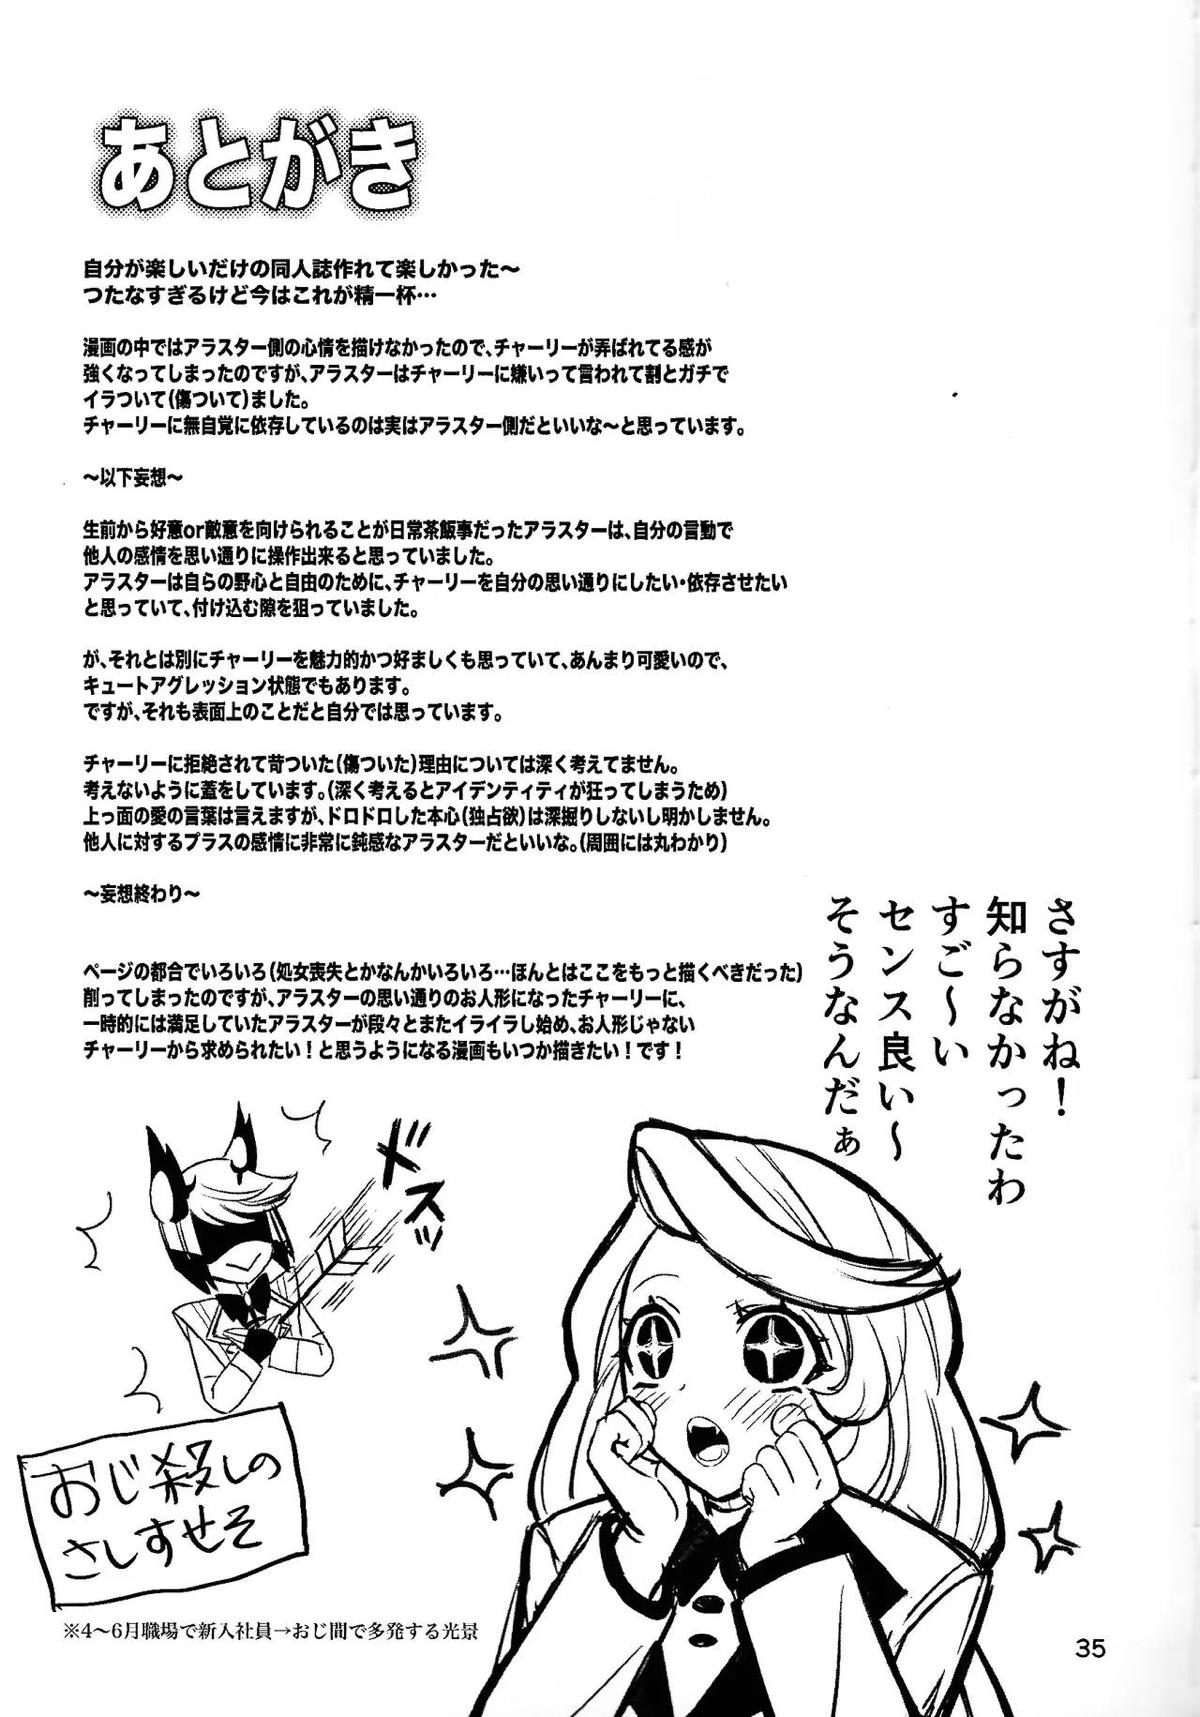 あとがき
自分が楽しいだけの同人誌作れて楽しかった～
つたなすぎるけど今はこれが精一杯…
漫画の中ではアラスター側の心情を描けなかったので、チャーリーが弄ばれてる感が
強くなってしまったのですが、アラスターはチャーリーに嫌いって言われて割とガチで
イラついて(傷ついて)ました。
チャーリーに無自覚に依存しているのは実はアラスター側だといいな～と思っています。
～以下妄想～
生前から好意or敵意を向けられることが日常茶飯事だったアラスターは、自分の言動で
他人の感情を思い通りに操作出来ると思っていました。
アラスターは自らの野心と自由のために、チャーリーを自分の思い通りにしたい・依存させたい
と思っていて、付け込む隙を狙っていました。
が、それとは別にチャーリーを魅力的かつ好ましくも思っていて、あんまり可愛いので、
キュートアグレッション状態でもあります。
ですが、それも表面上のことだと自分では思っています。
チャーリーに拒絶されて苛ついた(傷ついた)理由については深く考えてません。
考えないように蓋をしています。(深く考えるとアイデンティティが狂ってしまうため)
上っ面の愛の言葉は言えますが、ドロドロした本心(独占欲)は深掘りしないし明かしません。
他人に対するプラスの感情に非常に鈍感なアラスターだといいな。(周囲には丸わかり)
～妄想終わり～
ページの都合でいろいろ(処女喪失とかなんかいろいろ…ほんとはここをもっと描くべきだった)
削ってしまったのですが、アラスターの思い通りのお人形になったチャーリーに、
一時的には満足していたアラスターが段々とまたイライラし始め、お人形じゃない
チャーリーから求められたい！と思うようになる漫画もいつか描きたい！です！
さすがね！
知らなかったわ
すご～い
センス良い～
そうなんだぁ
ドスッ
おじ殺しの
さしすせそ
※4～6月職場で新入社員→おじ間で多発する光景
35